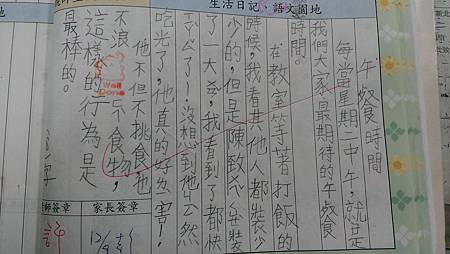 生活日記，語文園地
午餐時間
每當星期二中午，就是
我們大家最期待的午餐
時間。
在教室等著打飯的
時候，我看其他人都裝少
少的，但是陳致裝
了一大，我看到了都快
了！沒想到他居然
吃光了，他真的好害！
他不但不挑食，也
不浪食物，
這樣的行為是
最棒的。
Well Done
家長簽章
師簽章
12/9